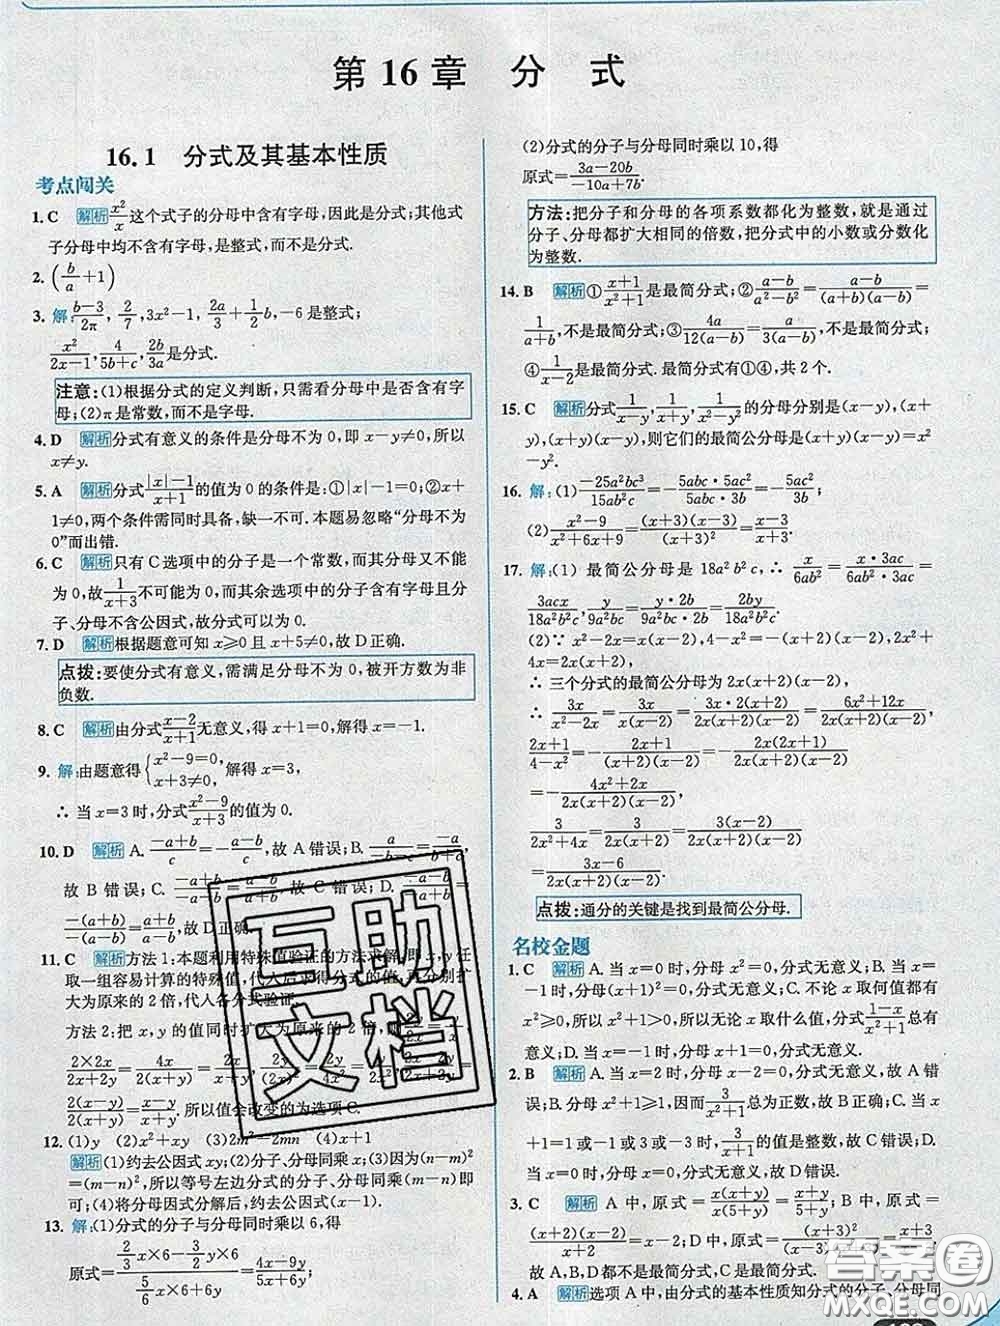 第 16 章 分 式
16.1 分式及其基本性质
考点闯关
1. C 解析 x²/x 这个式子的分母中含有字母,因此是分式;其他式
子分母中均不含有字母,是整式,而不是分式.
2. (b/a+1)
3. 解: (b-3)/2π, 2/7, 3x²-1, 2a/3+1/2 b, -6是整式;
x²/(2x-1), 4/(5b+c), 2b/3a 是分式.
注意:(1)根据分式的定义判断,只需看分母中是否含有字
母;(2)π是常数,而不是字母.
4. D 解析 分式有意义的条件是分母不为 0,即 x-y≠0,所以
x≠y.
5. A 解析 分式 (|x|-1)/(x+1) 的值为 0 的条件是:①|x|-1=0;②x+
1≠0,两个条件需同时具备,缺一不可. 本题易忽略“分母不为
0”而出错.
6. C 解析 只有 C 选项中的分子是一个常数,而其分母又不能
为 0,故 1/(x+3) 不可能为 0,而其余选项中的分子含有字母且分
子、分母不含公因式,故分式可以为 0.
7. D 解析 根据题意可知 x≥0 且 x+5≠0,故 D 正确.
点拨:要使分式有意义,需满足分母不为 0,被开方数为非
负数.
8. C 解析 由分式 (x-2)/(x+1) 无意义,得 x+1=0,解得 x=-1.
9. 解:由题意得 { x²-9=0, x+3≠0, 解得 x=3,
∴ 当 x=3 时,分式 (x²-9)/(x+3) 的值为 0.
10. D 解析 A. (-a+b)/c = -(a-b)/c,故 A 错误;B. a/(-b) = -a/b,
故 B 错误;C. (-a-b)/c = -(a+b)/c,故 C 错误;D. (-a-b)/(-a+b)
= -(a+b)/-(a-b) = (a+b)/(a-b),故 D 正确.
11. C 解析 方法 1:本题利用特殊值验证的方法求解,即 x,y 任
取一组容易计算的特殊值,代入后求得分式的值,再分别扩
大为原来的 2 倍,代入各分式验证.
方法 2:把 x,y 的值同时扩大为原来的 2 倍,
(2×2x)/(2x+2y) = 4x/2(x+y) = 2x/(x+y)
2(x-y)/2(x+y) = (x-y)/(x+y). 所以值会改变的为选项 C.
12. (1)y (2)x²+xy (3)2m²-2mn (4)x-1
解析 (1)约去公因式 xy;(2)分子、分母同乘 x;(3)因(n-m)²
=(m-n)²,所以等号左边分式的分子、分母同乘(m-n)即
可;(4)将分母因式分解后,约去公因式(x-1).
13. 解:(1)分式的分子与分母同时乘以 6,得
原式 = (2/3 x×6-3/2 y×6)/(5/6 x×6+2y×6) = (4x-9y)/(5x+12y);
(2)分式的分子与分母同时乘以 10,得
原式 = (3a-20b)/(-10a+7b).
方法:把分子和分母的各项系数都化为整数,就是通过
分子、分母都扩大相同的倍数,把分式中的小数或分数化
为整数.
14. B 解析 ① (x+1)/(x²+1) 是最简分式;② (a-b)/(a²-b²) = (a-b)/(a+b)(a-b) =
1/(a+b),不是最简分式;③ 4a/12(a-b) = a/3(a-b),不是最简分式;
④ 1/(x-2) 是最简分式. 最简分式有①④,共 2 个.
15. C 解析 分式 1/(x-y), 1/(x+y), 1/(x²-y²) 的分母分别是(x-y),(x+
y),(x+y)(x-y),则它们的最简公分母是(x+y)(x-y)=x²-
y².
16. 解:(1) -25a²bc³/15ab²c = -(5abc·5ac²)/(5abc·3b) = -5ac²/3b;
(2) (x²-9)/(x²+6x+9) = (x+3)(x-3)/(x+3)² = (x-3)/(x+3).
17. 解:(1) 最简公分母是 18a²b²c, ∴ x/6ab² = (x·3ac)/(6ab²·3ac) =
3acx/18a²b²c, y/9a²bc = (y·2b)/(9a²bc·2b) = 2by/18a²b²c.
(2)∵ x²-2x=x(x-2),4-x²=-(x+2)(x-2),2x²+
4x=2x(x+2),
∴ 三个分式的最简公分母为 2x(x+2)(x-2),
∴ 3x/(x²-2x) = 3x/x(x-2) = 3x·2(x+2)/2x(x+2)(x-2) = (6x²+12x)/2x(x+2)(x-2),
(2x+1)/(4-x²) = -(2x+1)/(x+2)(x-2) = -2x(2x+1)/2x(x+2)(x-2)
= -(4x²+2x)/2x(x+2)(x-2),
3/(2x²+4x) = 3/2x(x+2) = 3(x-2)/2x(x+2)(x-2) =
(3x-6)/2x(x+2)(x-2).
点拨:通分的关键是找到最简公分母.
名校金题
1. C 解析 A. 当 x=0 时,分母 x²=0,分式无意义;B. 当 x=
-1 时,分母(x+1)²=0,分式无意义;C. 不论 x 取何值都有
x²≥0,所以 x²+1>0,所以无论 x 取什么值,分式 (1-x)/(x²+1) 总有
意义;D. 当 x=-1 时,分母 x+1=0,分式无意义.
2. B 解析 A. 当 x=2 时,分母 x-2=0,分式无意义,故 A 错
误;B. 分母 x²+1≥1,因而 1/(x²+1) 总为正数,故 B 正确;C. 当 x
+1=1 或-1 或 3 或-3 时, 3/(x+1) 的值是整数,故 C 错误;D.
当 x=0 时,分母 x=0,分式无意义,故 D 错误.
3. C 解析 A 中,原式 = x(x+y)/x(5+y) = (x+y)/(5+y);B 中,原式 =
(x+2)(x-2)/(x+2) = x-2;D 中,原式 = 1/(x-y). 由最简分式的定义可知
A,B,D 都不是最简分式,C 是最简分式.
4. A 解析 选项 A 中,由分式的基本性质知分式的分子、分母同
互助
文档
答案圈
MXQE.COM